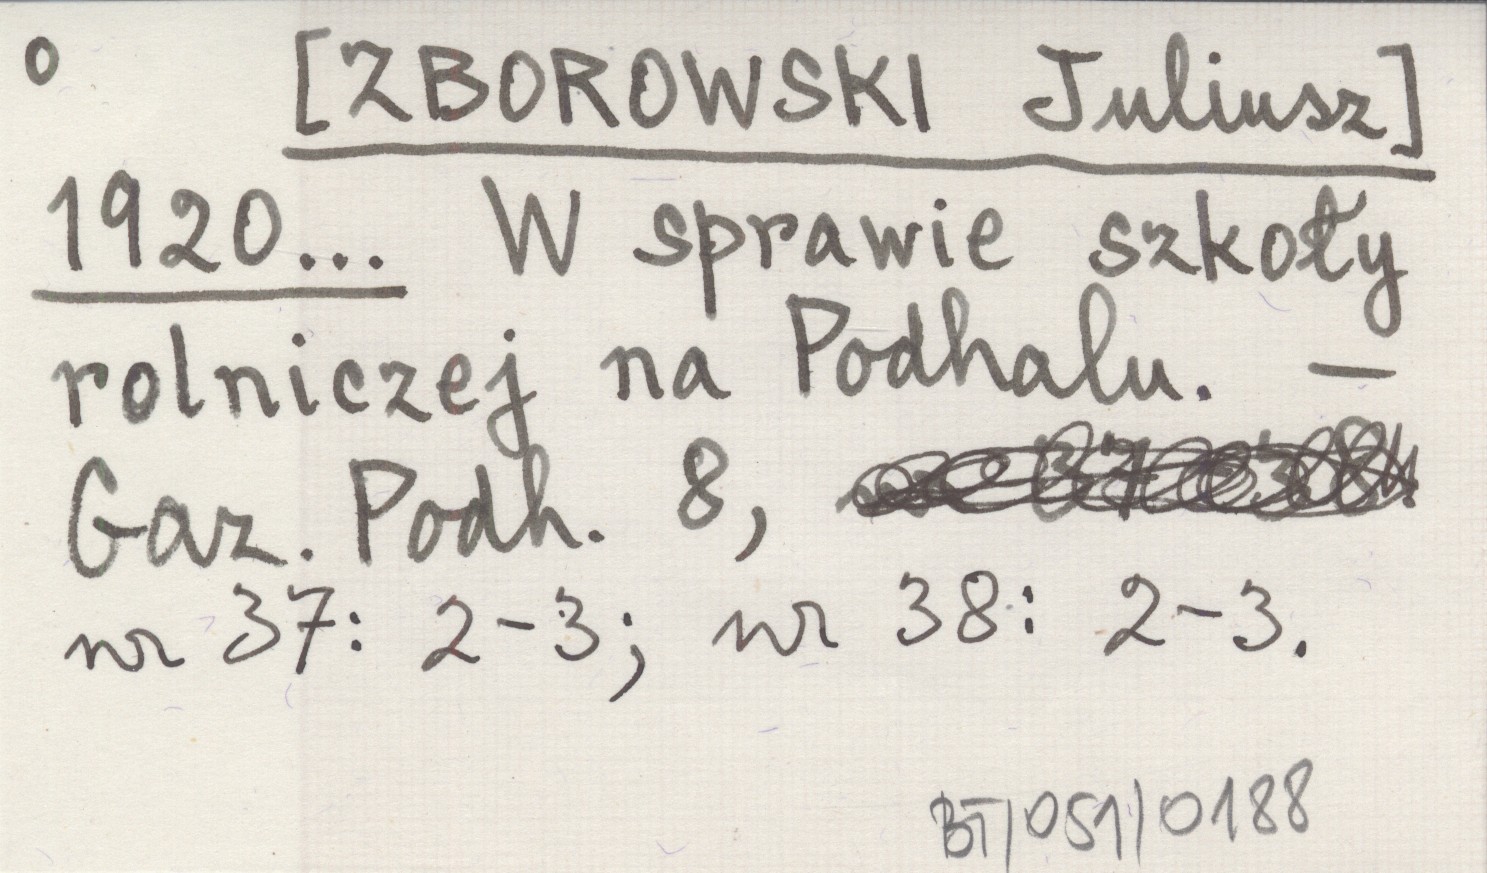 o [ZBOROWSKI Juliusz]
1920... W sprawie szkoły
rolniczej na Podhalu. —
Gaz. Podh. 8,
nr 37: 2-3; nr 38: 2-3.
BT/051/0188